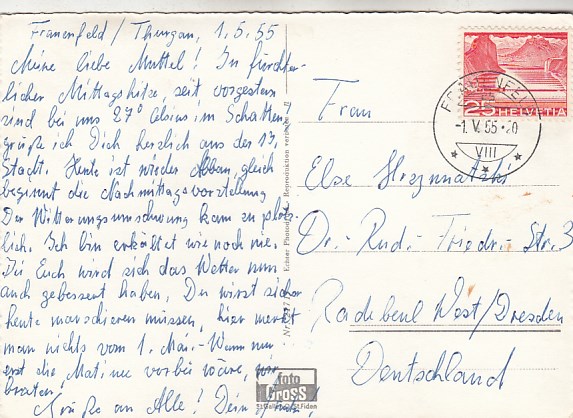 Frauenfeld / Thurgau, 1.5.55
Meine liebe Muttel! In fürchter-
licher Mittagshitze, seit vorgestern
sind bei uns 27° Celsius im Schatten
grüße ich Dich herzlich aus der 13.
Stadt. Heute ist wieder Abbau, gleich
beginnt die Nachmittagsvorstellung
Der Witterungsumschwung kam so plötz-
lich. Ich bin erkältet wie noch nie.
Bei Euch wird sich das Wetter nun
auch gebessert haben. Du wirst sicher
heute marschieren müssen, hier merkt
man nichts vom 1. Mai. Wenn nur
erst die Matinee vorbei wäre, wir
braten.
Grüße an Alle! Dein
Frau
Else
Dr.-Rud.-Friedr.-Str. 3
Radebeul West/Dresden
Deutschland
FRAUENFELD
-1.V.55.-20
VIII
25 HELVETIA
foto
Gross
St. Gallen St. Fiden
Reproduktion verboten